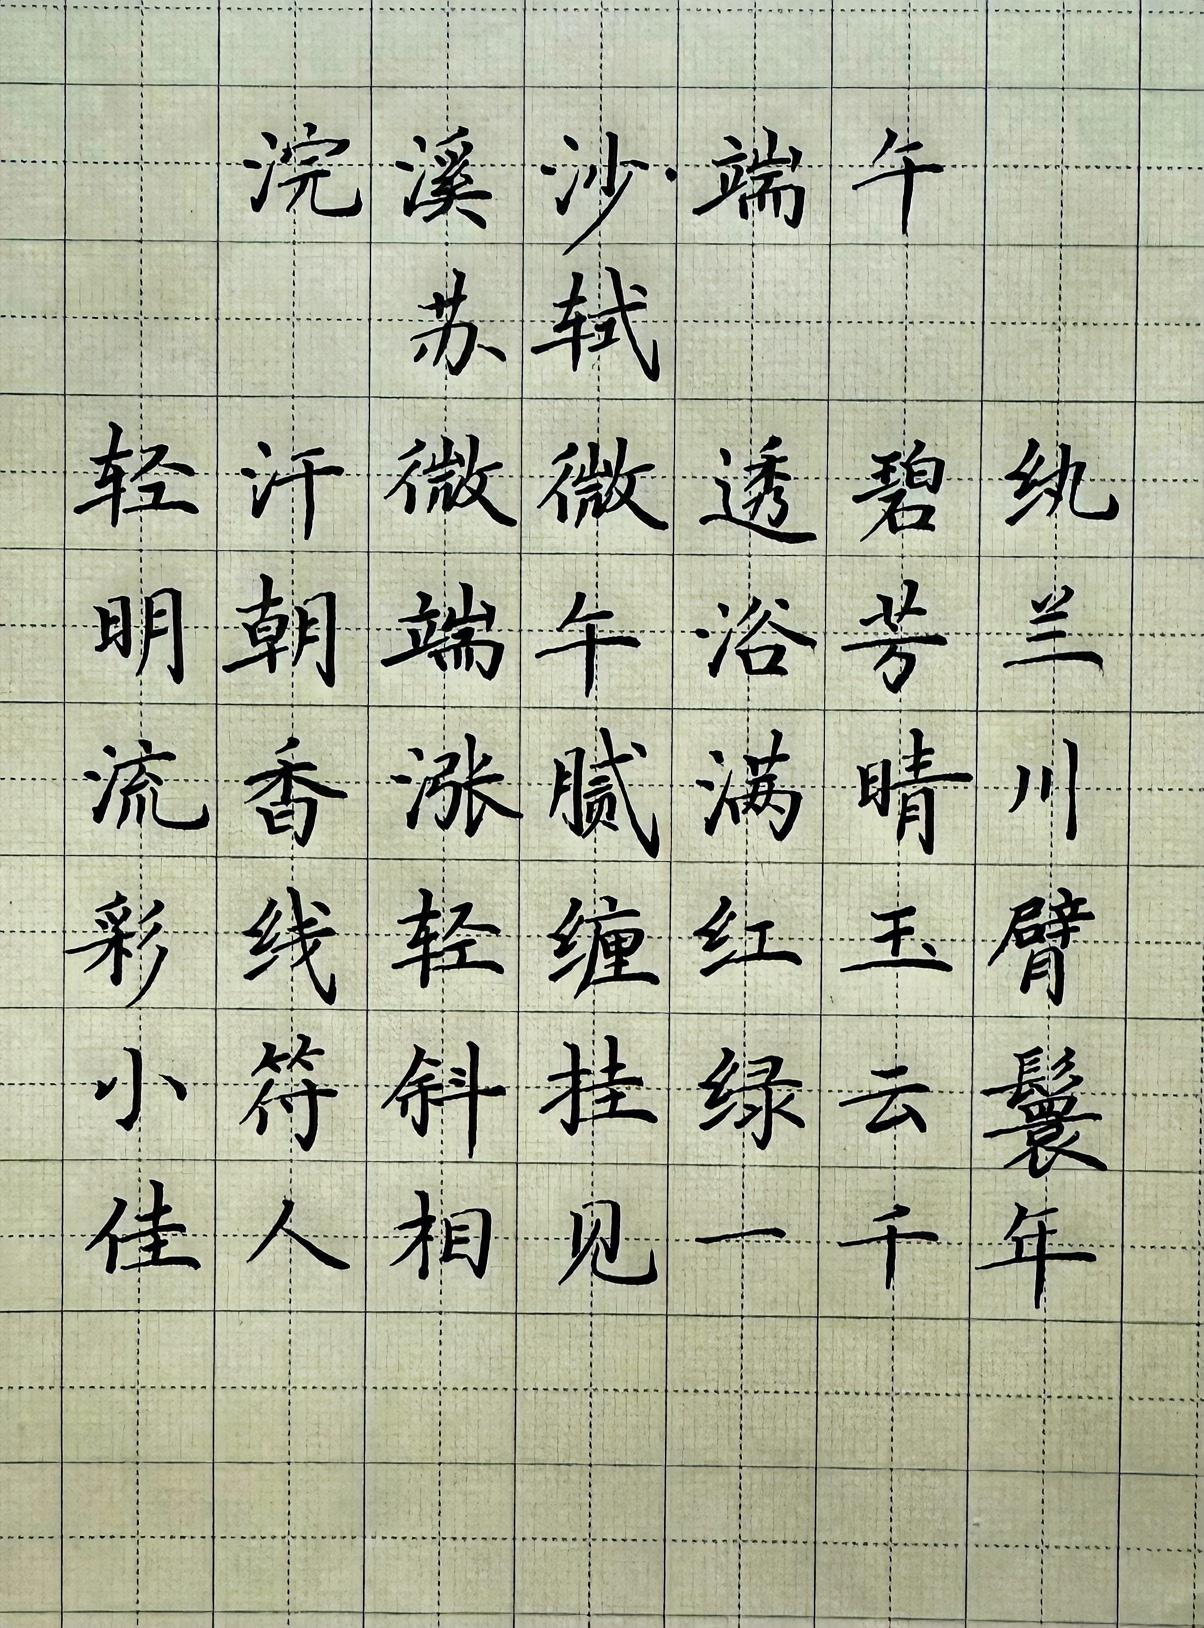 浣溪沙·端午
苏轼
轻汗微微透碧纨
明朝端午浴芳兰
流香涨腻满晴川
彩线轻缠红玉臂
小符斜挂绿云鬟
佳人相见一千年